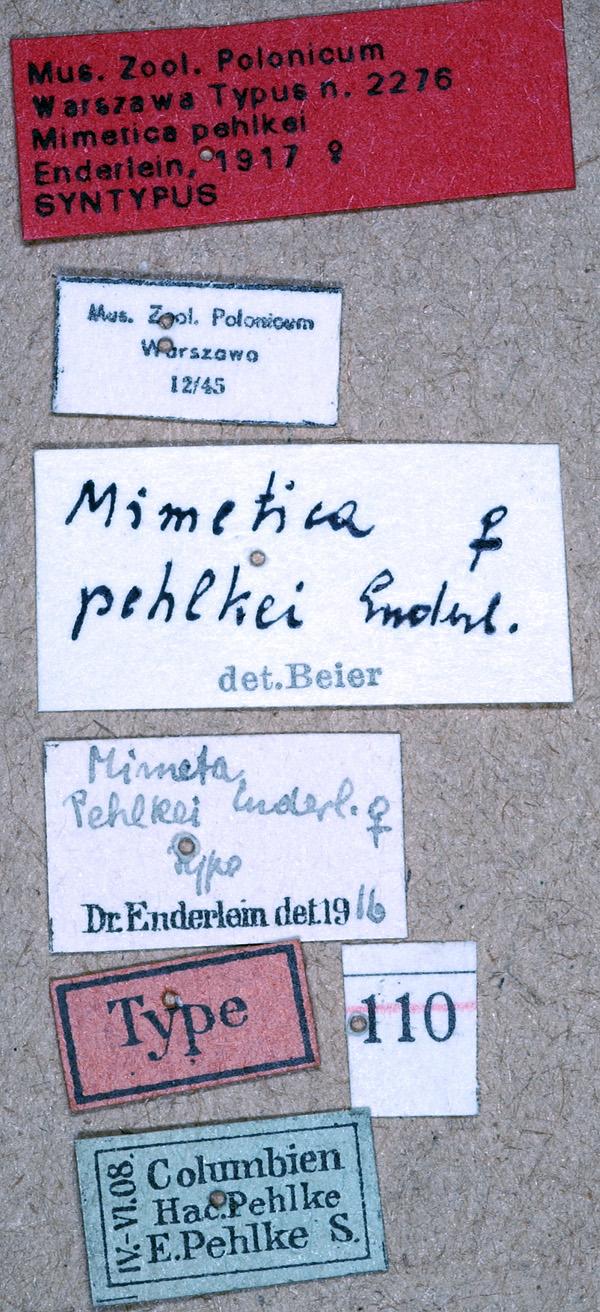 Mus. Zool. Polonicum
Warszawa Typus n. 2276
Mimetica pehlkei
Enderlein, 1917 ♀
SYNTYPUS
Mus. Zool. Polonicum
Warszawa
12/45
Mimetica ♀
pehlkei Enderl.
det. Beier
Mimeta
Pehlkei Enderl. ♀
Type
Dr. Enderlein det. 1916
Type
110
IV.-VI.08.
Columbien
Hac. Pehlke
E. Pehlke S.